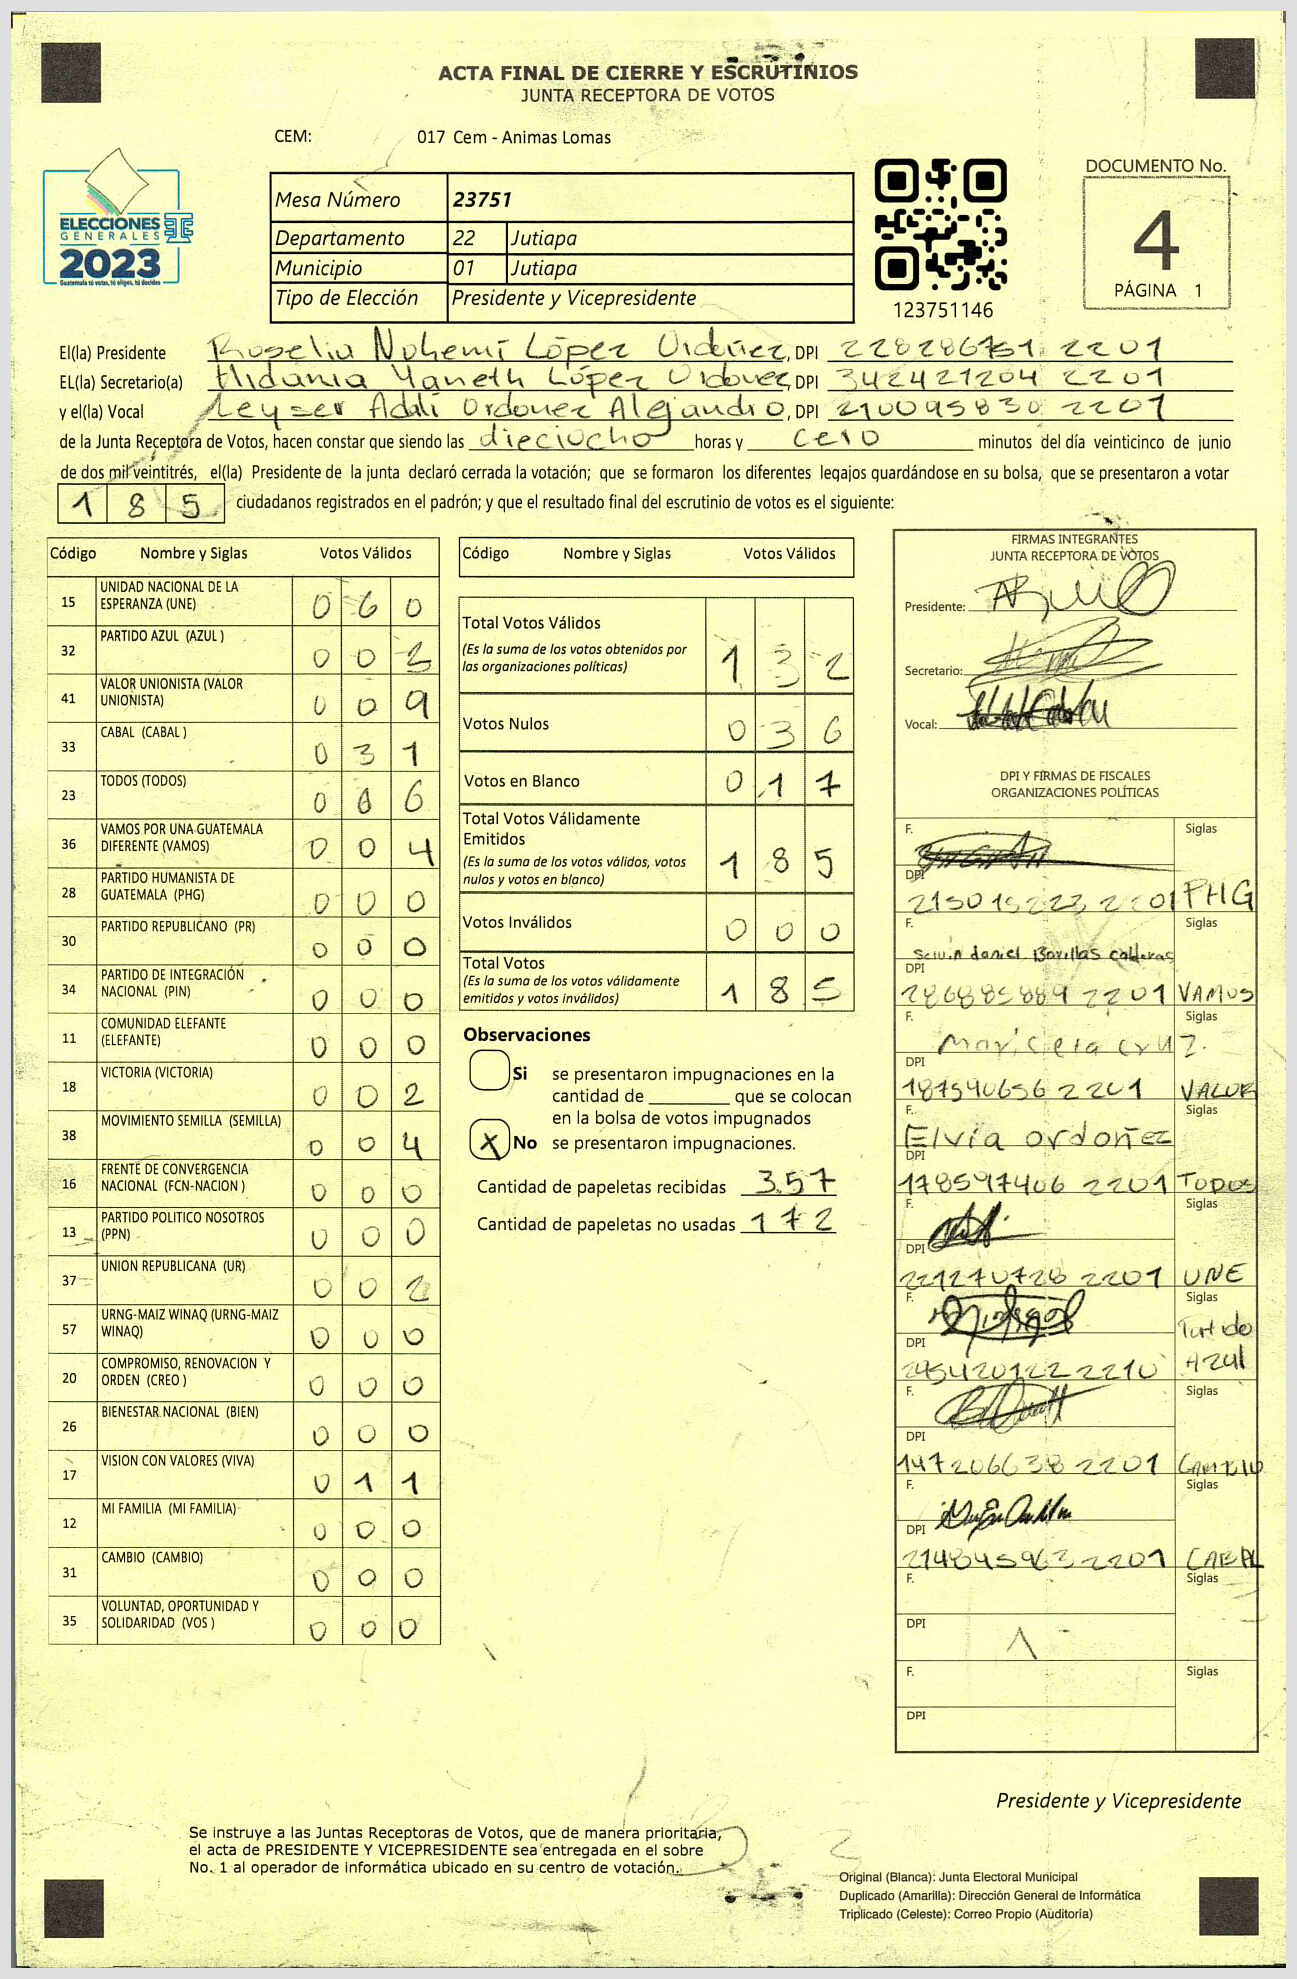 ACTA FINAL DE CIERRE Y ESCRUTINIOS
JUNTA RECEPTORA DE VOTOS
CEM: 017 Cem - Animas Lomas
ELECCIONES
GENERALES
2023
Guatemala tú votas, tú eliges, tú decides
Mesa Número 23751
Departamento 22 Jutiapa
Municipio 01 Jutiapa
Tipo de Elección Presidente y Vicepresidente
123751146
DOCUMENTO No.
4
PÁGINA 1
El(la) Presidente Roselia Nohemí López Ordoñez, DPI 228286751 2201
EL(la) Secretario(a) Yaneth López Ordonez, DPI 342421204 2201
y el(la) Vocal Leyser Adalí Ordonez Alejandro, DPI 210095830 2201
de la Junta Receptora de Votos, hacen constar que siendo las dieciocho horas y cero minutos del día veinticinco de junio
de dos mil veintitrés, el(la) Presidente de la junta declaró cerrada la votación; que se formaron los diferentes legajos guardándose en su bolsa, que se presentaron a votar
185 ciudadanos registrados en el padrón; y que el resultado final del escrutinio de votos es el siguiente:
Código Nombre y Siglas Votos Válidos
15 UNIDAD NACIONAL DE LA ESPERANZA (UNE) 0 6 0
32 PARTIDO AZUL (AZUL ) 0 0 3
41 VALOR UNIONISTA (VALOR UNIONISTA) 0 0 9
33 CABAL (CABAL ) 0 3 1
23 TODOS (TODOS) 0 0 6
36 VAMOS POR UNA GUATEMALA DIFERENTE (VAMOS) 0 0 4
28 PARTIDO HUMANISTA DE GUATEMALA (PHG) 0 0 0
30 PARTIDO REPUBLICANO (PR) 0 0 0
34 PARTIDO DE INTEGRACIÓN NACIONAL (PIN) 0 0 0
11 COMUNIDAD ELEFANTE (ELEFANTE) 0 0 0
18 VICTORIA (VICTORIA) 0 0 2
38 MOVIMIENTO SEMILLA (SEMILLA) 0 0 4
16 FRENTE DE CONVERGENCIA NACIONAL (FCN-NACION ) 0 0 0
13 PARTIDO POLITICO NOSOTROS (PPN) 0 0 0
37 UNION REPUBLICANA (UR) 0 0 2
57 URNG-MAIZ WINAQ (URNG-MAIZ WINAQ) 0 0 0
20 COMPROMISO, RENOVACION Y ORDEN (CREO ) 0 0 0
26 BIENESTAR NACIONAL (BIEN) 0 0 0
17 VISION CON VALORES (VIVA) 0 1 1
12 MI FAMILIA (MI FAMILIA) 0 0 0
31 CAMBIO (CAMBIO) 0 0 0
35 VOLUNTAD, OPORTUNIDAD Y SOLIDARIDAD (VOS ) 0 0 0
Código Nombre y Siglas Votos Válidos
Total Votos Válidos 1 3 2
(Es la suma de los votos obtenidos por
las organizaciones políticas)
Votos Nulos 0 3 6
Votos en Blanco 0 1 7
Total Votos Válidamente
Emitidos 1 8 5
(Es la suma de los votos válidos, votos
nulos y votos en blanco)
Votos Inválidos 0 0 0
Total Votos 1 8 5
(Es la suma de los votos válidamente
emitidos y votos inválidos)
Observaciones
Si se presentaron impugnaciones en la
cantidad de ________ que se colocan
en la bolsa de votos impugnados
X No se presentaron impugnaciones.
Cantidad de papeletas recibidas 357
Cantidad de papeletas no usadas 172
FIRMAS INTEGRANTES
JUNTA RECEPTORA DE VOTOS
Presidente:
Secretario:
Vocal:
DPI Y FIRMAS DE FISCALES
ORGANIZACIONES POLÍTICAS
F. Siglas
DPI
2201 PHG
F. Siglas
daniel Barillas calderas
DPI
286885889 2201 VAMOS
F. Siglas
Maricela cruz.
DPI
187540656 2201 VALOR
F. Siglas
Elvia ordoñez
DPI
178597406 2201 TODOS
F. Siglas
DPI
221270728 2201 UNE
F. Siglas
DPI
295420122 2210 Partido Azul
F. Siglas
DPI
147206638 2201
F. Siglas
DPI
214845963 2201 CABAL
F. Siglas
DPI
F. Siglas
DPI
Presidente y Vicepresidente
Se instruye a las Juntas Receptoras de Votos, que de manera prioritaria,
el acta de PRESIDENTE Y VICEPRESIDENTE sea entregada en el sobre
No. 1 al operador de informática ubicado en su centro de votación.
Original (Blanca): Junta Electoral Municipal
Duplicado (Amarilla): Dirección General de Informática
Triplicado (Celeste): Correo Propio (Auditoría)